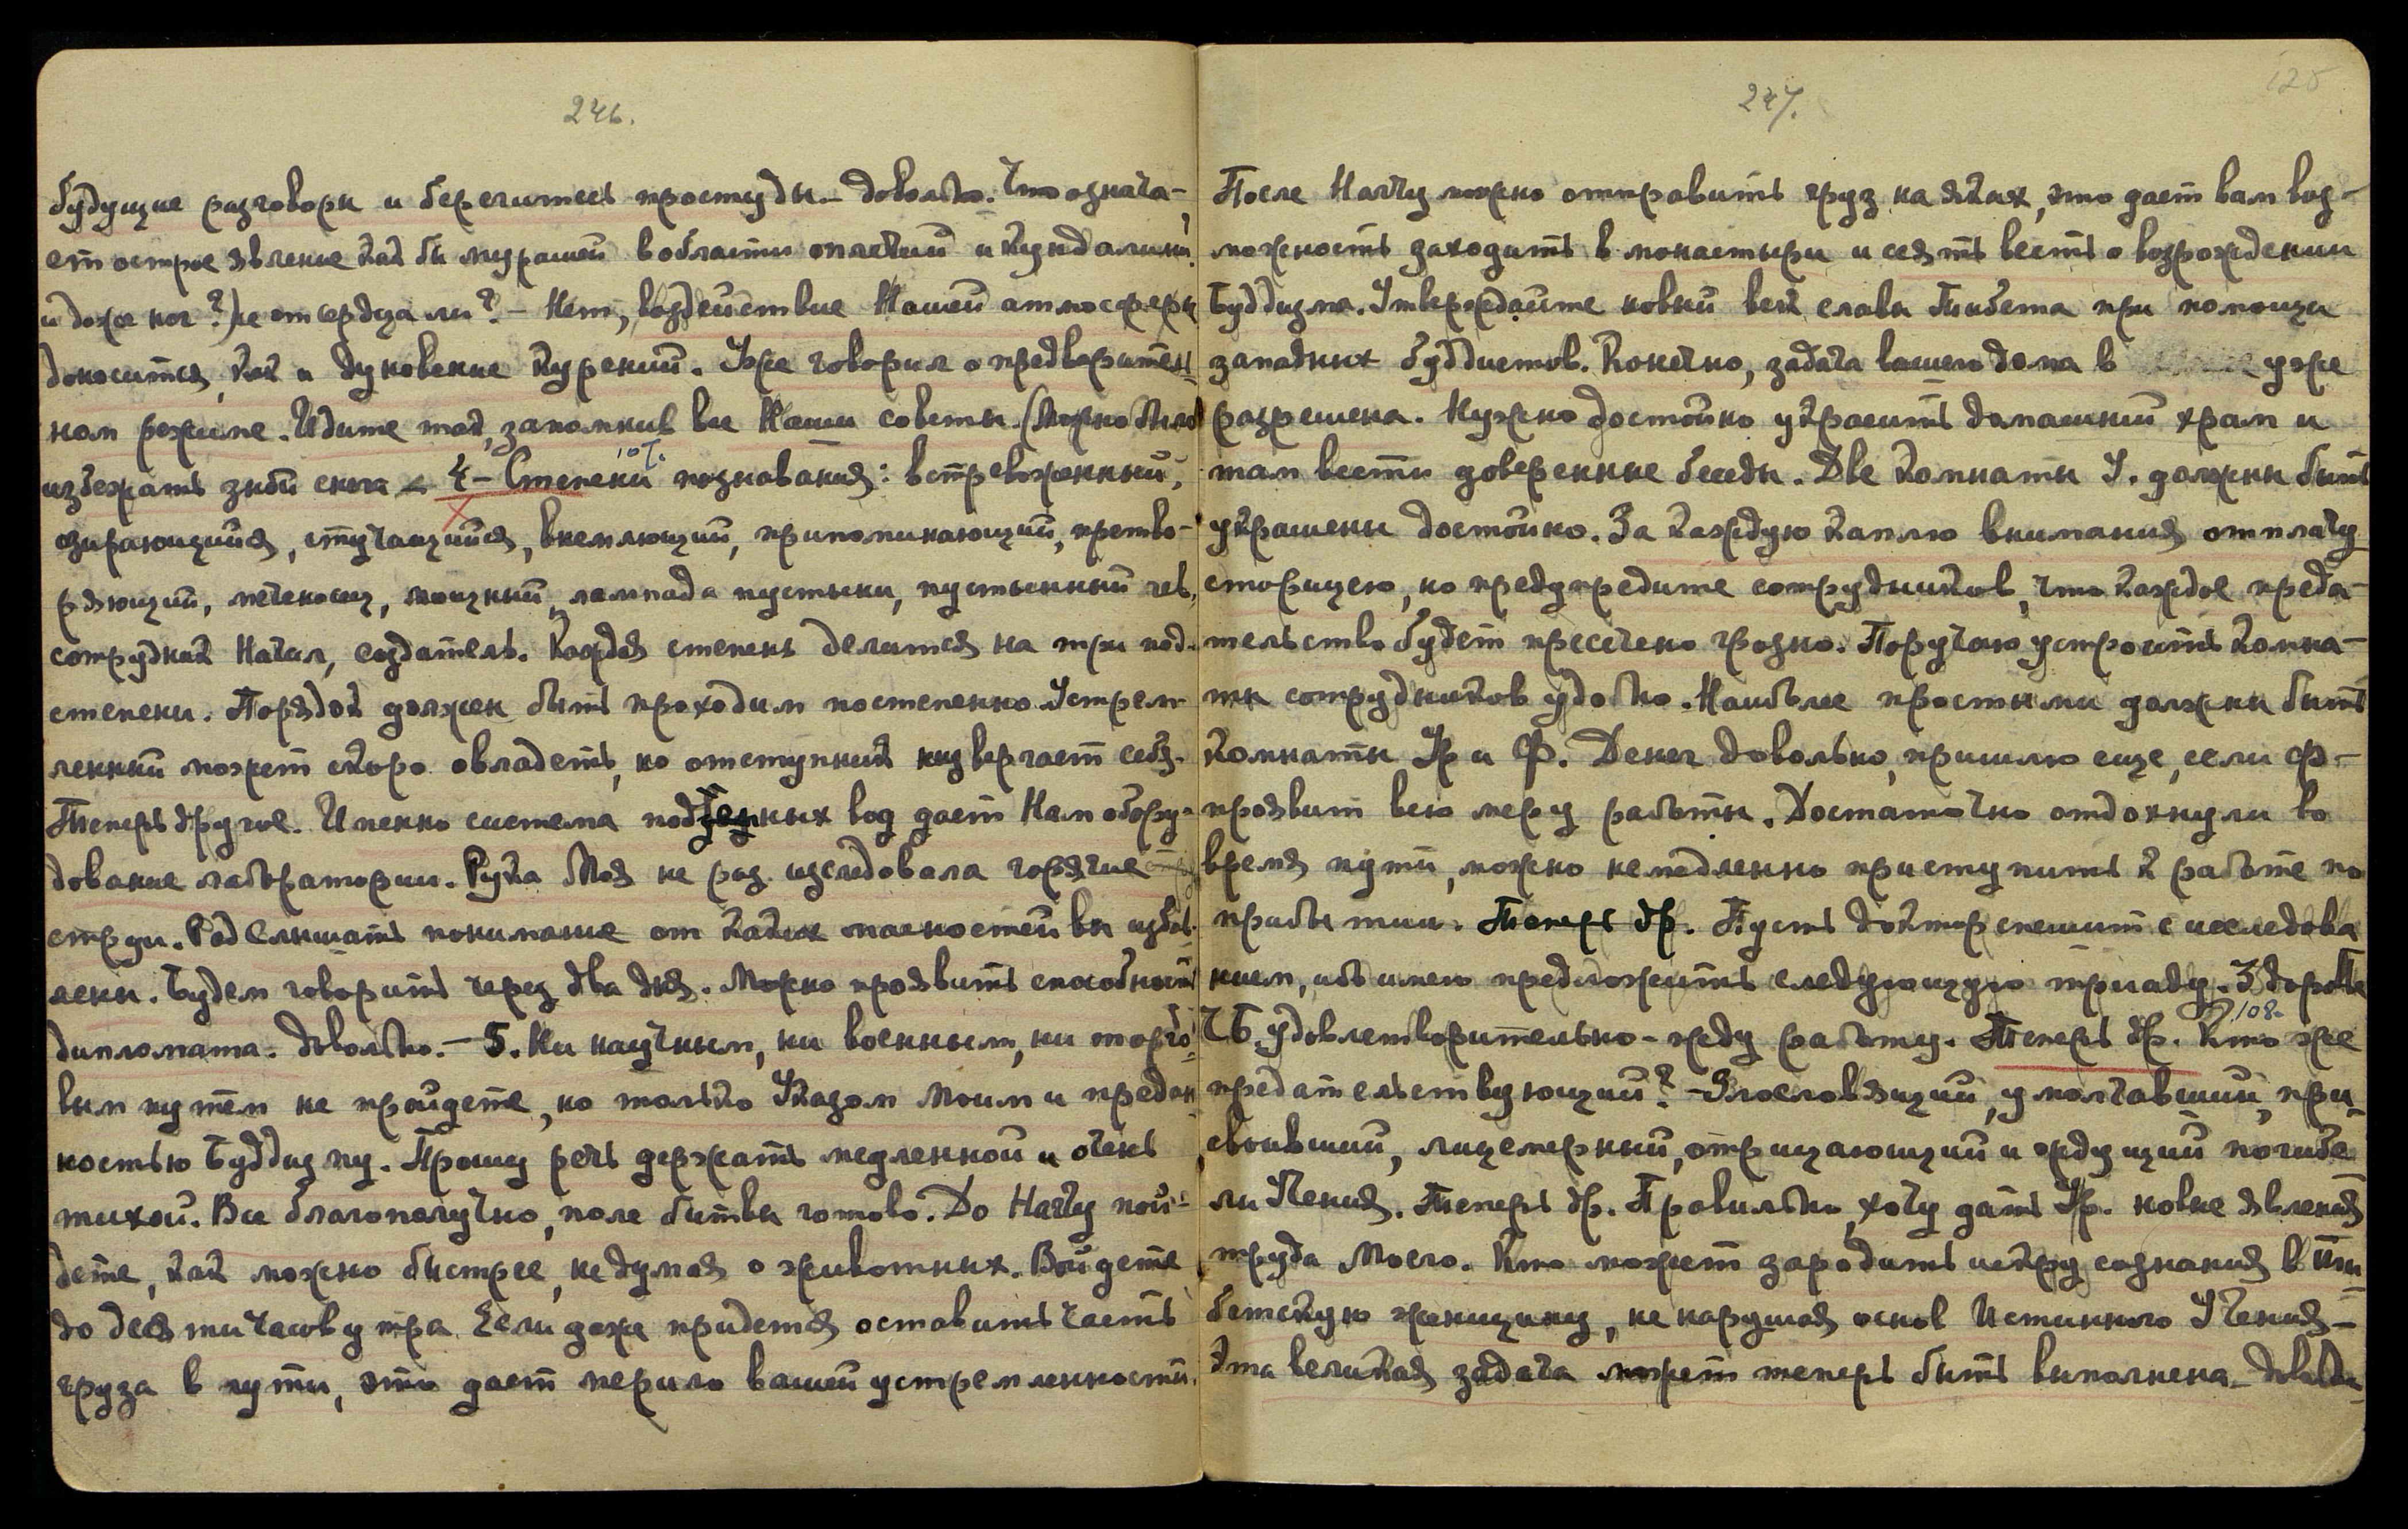 246.
будущие разговоры и берегитесь простуды. – Довольно. Что означа-
ет острое явление как бы мурашей в области оплечий и кундалини
и даже ног? Не от сердца ли? – Нет, воздействие Нашей атмосферы
доносится, как и дуновение курений. Уже говорил о предваритель-
ном режиме. Идите так, запомнив все Наши советы. (Можно было
избежать
107.
4 – Степени познавания: встревоженный,
озирающийся, стучащийся, внемлющий, припоминающий, претво-
ряющий, меченосец, мощный, лампада пустыни, пустынный лев,
сотрудник Начал, создатель. Каждая степень делится на три под-
степени. Порядок должен быть проходим постепенно. Устрем-
ленный может скоро овладеть, но отступник низвергает себя.
Теперь другое. Именно система подземных вод дает Нам обору-
дование лаборатории. Рука Моя не раз исследовала горячие
струи. Рад слышать понимание от каких опасностей вы избав-
лены. Будем говорить через два дня. Можно проявить способность
дипломата. Довольно. – 5. Ни научным, ни военным, ни торго-
вым путем не пройдете, но только Указом Моим и предан-
ностью Буддизму. Прошу речь держать медленной и очень
тихой. Все благополучно, поле битвы готово. До Нагчу пой-
дете, как можно быстрее, не думая о животных. Войдете
до десяти часов утра. Если даже придется оставить часть
груза в пути, это дает мерило вашей устремленности.
247.
125
После Нагчу можно отправить груз на яках, это дает вам воз-
можность заходить в монастыри и сеять весть о возрождении
Буддизма. Утверждайте новый век славы Тибета при помощи
западных буддистов. Конечно, задача вашего дома в уже
разрешена. Нужно достойно украсить домашний храм и
там вести доверенные беседы. Две комнаты У. должны быть
украшены достойно. За каждую каплю внимания отплачу
сторицею, но предупредите сотрудников, что каждое преда-
тельство будет пресечено грозно. Поручаю устроить комна-
ты сотрудников удобно. Наиболее простыми должны быть
комнаты Ур и Ф. Денег довольно, пришлю еще, если Ф –
проявит всю меру работы. Достаточно отдохнули во
время пути, можно немедленно приступить к работе по
прибытии. Теперь др. Пусть доктор спешит с исследова
нием, ибо имею предложить следующую триаду. Здоровье
108.
ЧБ. удовлетворительно – жду работу. Теперь др. Кто же
предательствующий? – Злословящий, умолчавший, при-
своивший, лицемерный, отрицающий и ждущий погибе-
ли Учения. Теперь др. Правильно, хочу дать Ур. новые явления
труда Моего. Кто может зародить искру сознания в ти-
бетскую женщину, не нарушая основ Истинного Учения –
Эта великая задача может теперь быть выполнена. Довольно